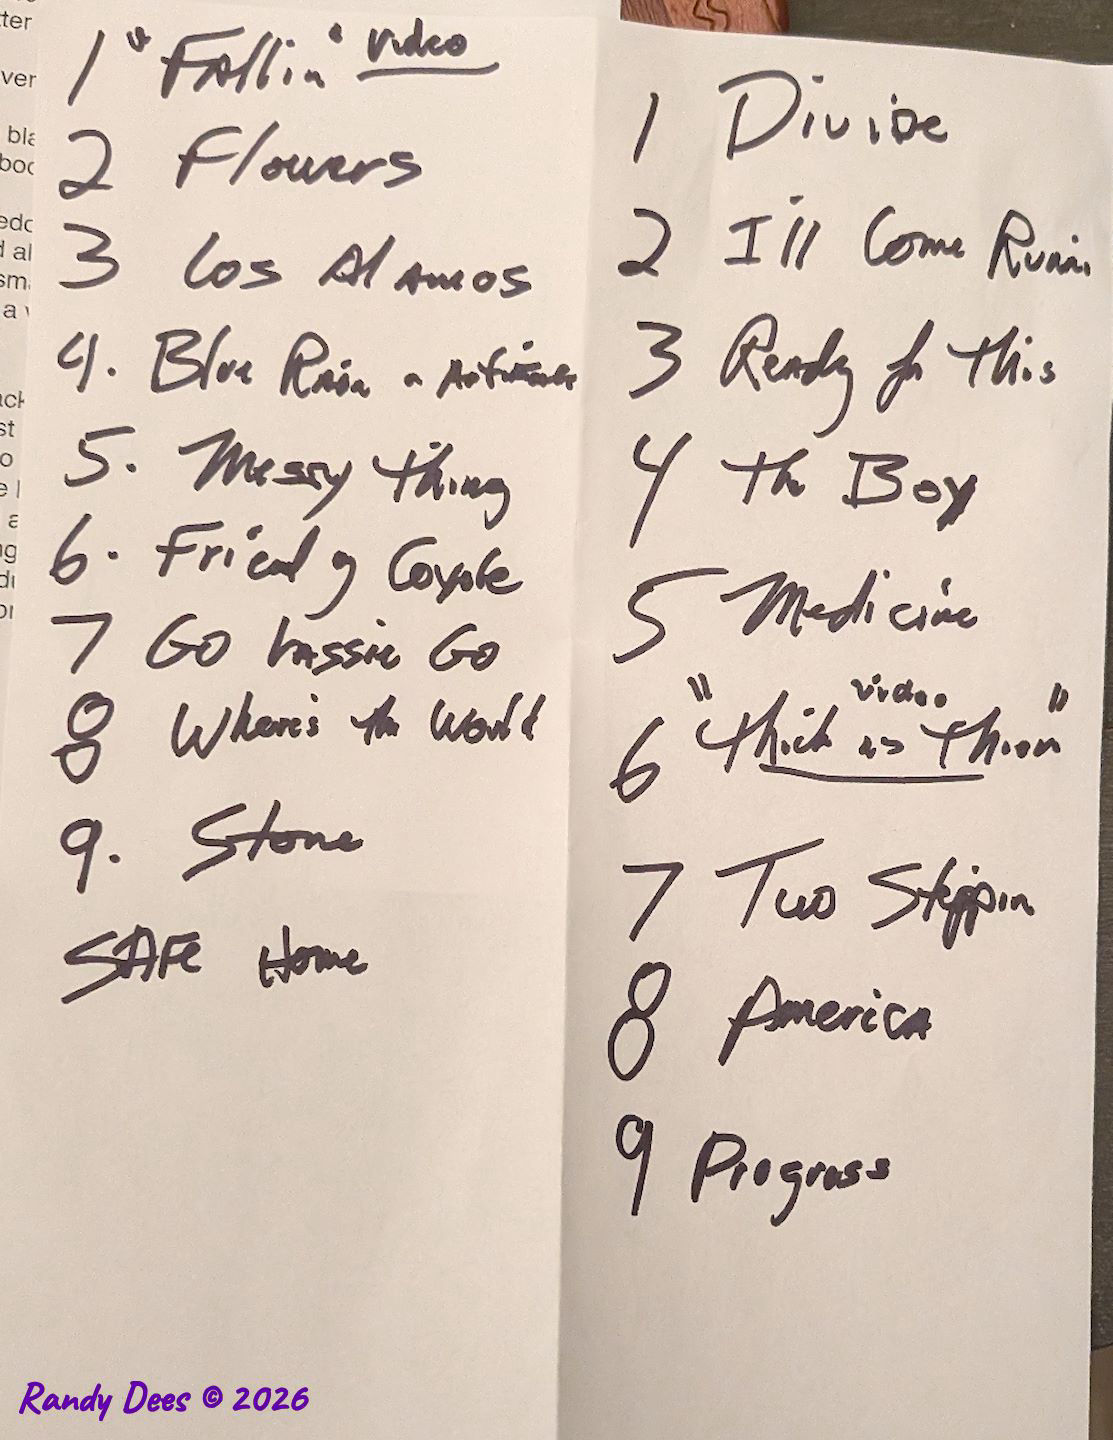 1 "Fallin" Video
2 Flowers
3 Los Alamos
4. Blue Rain
5. Messy thing
6. Friendly Coyote
7 Go Lassie Go
8 Where's the World
9. Stone
SAFe Home
1 Divide
2 I'll Come Runnin
3 Ready for this
4 The Boy
5 Medicine
video
6 "thick as thien"
7 Two Steppin
8 America
9 Progress
Randy Dees © 2026